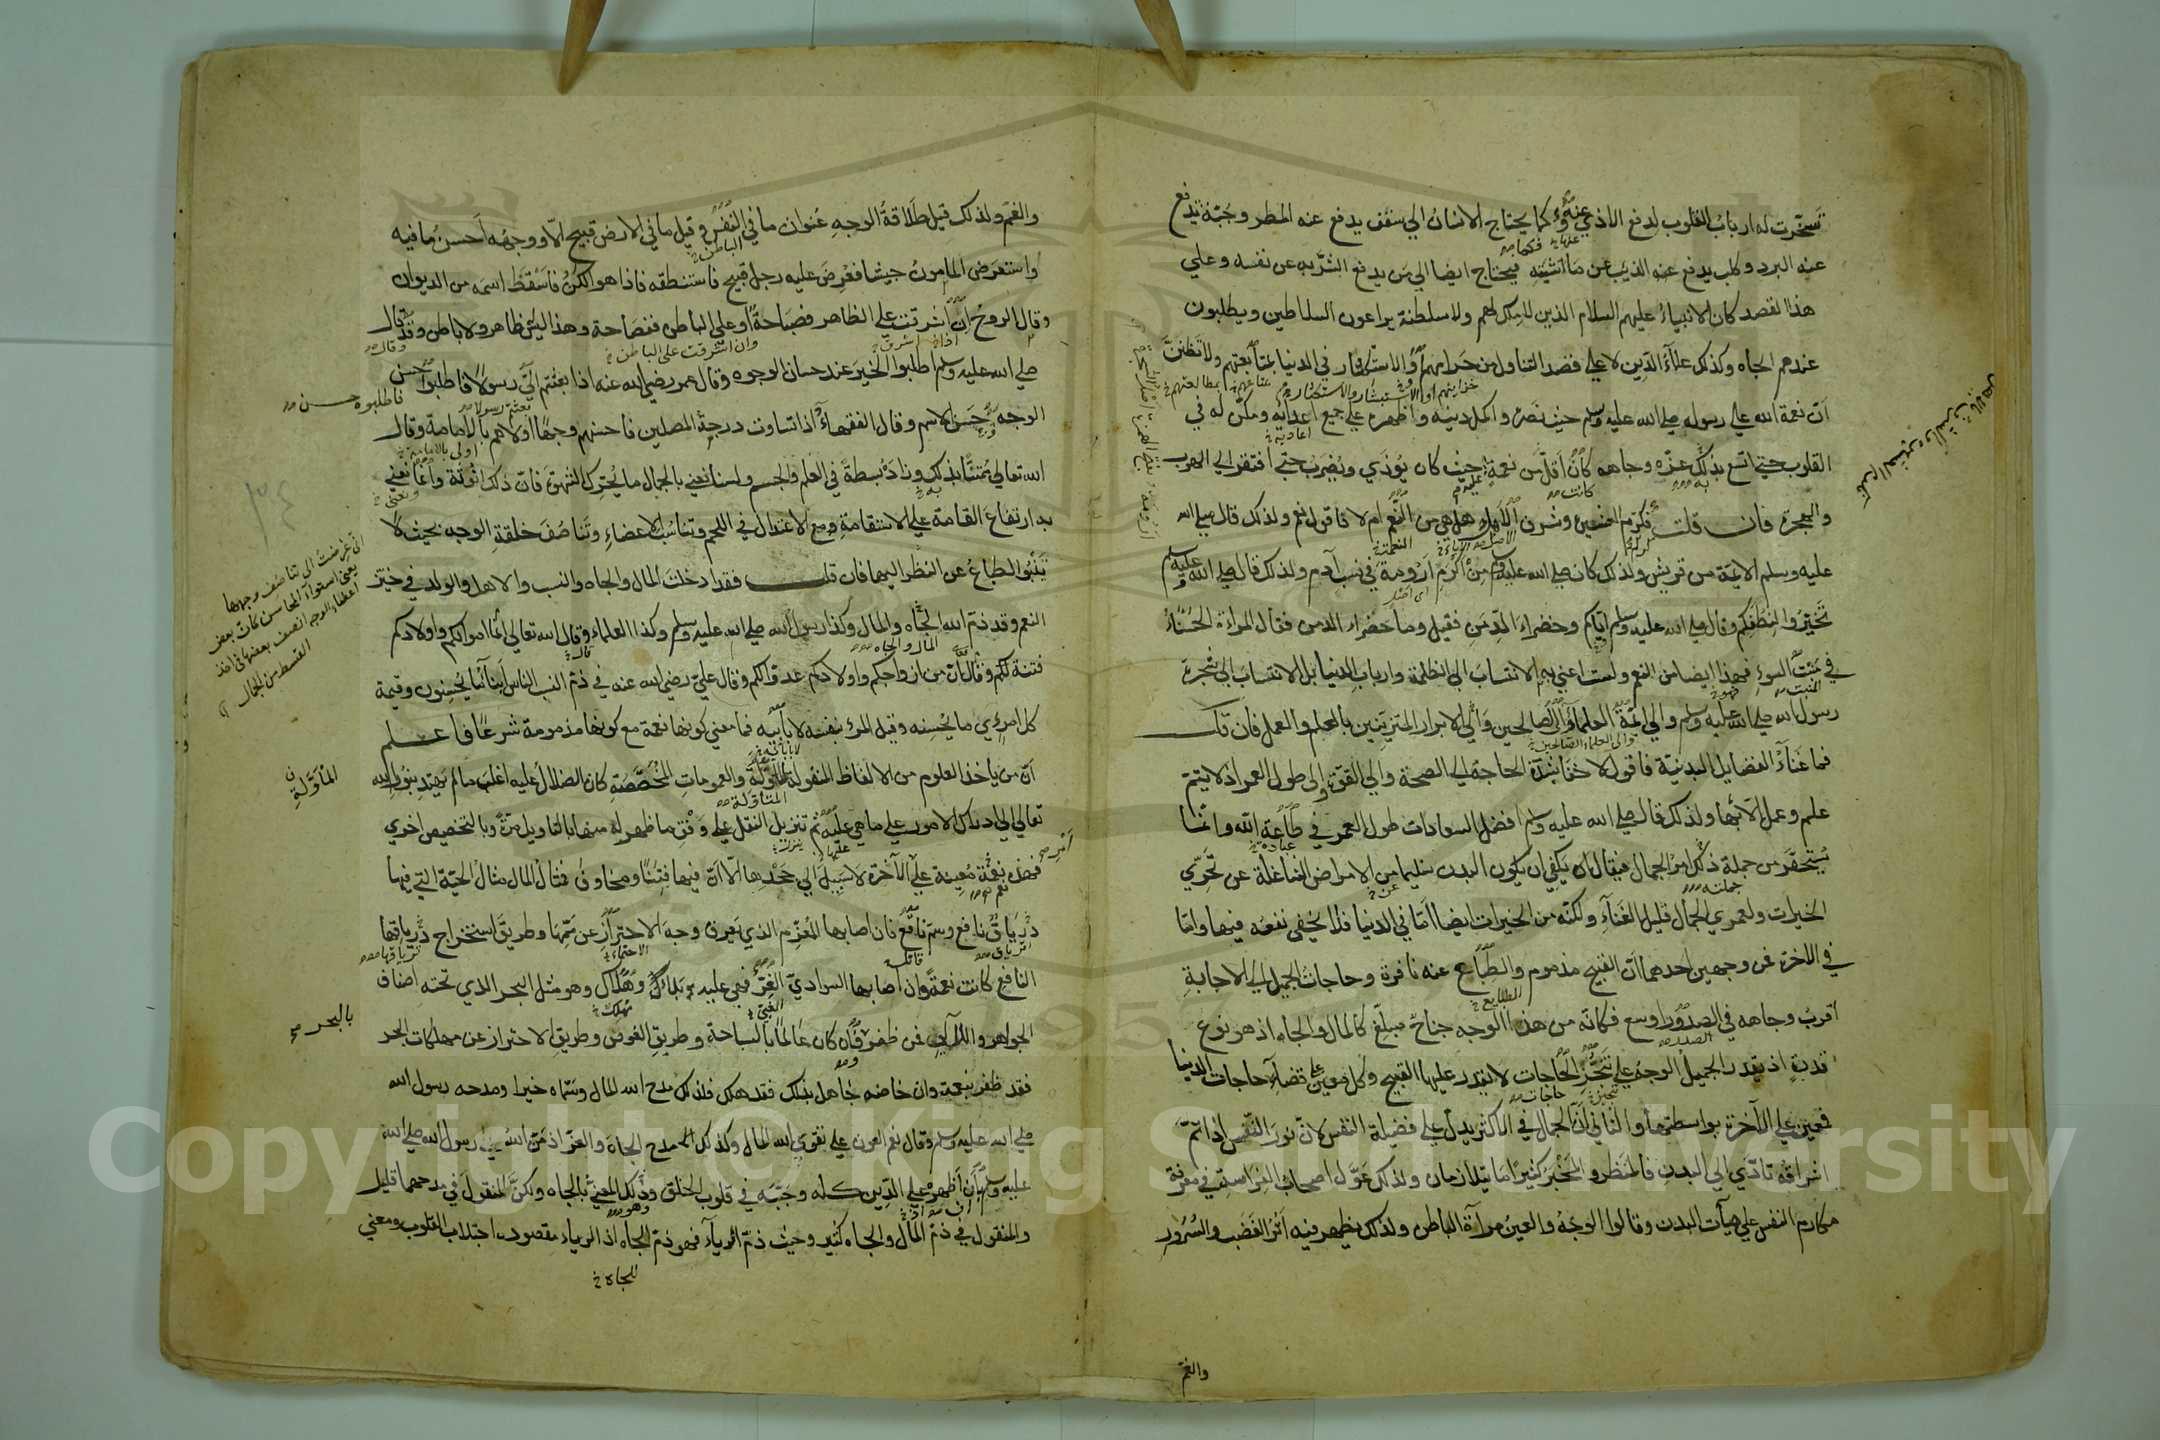 تسخرت له ارباب القلوب لدفع الاذي عنه كما يحتاج الانسان الي سقف يدفع عنه المطر وجبّة تدفع
عنه البرد وكلب يدفع عنه الذئب عن ماشيته فيحتاج ايضا الي من يدفع الشر به عن نفسه وعلي
هذا القصد كان الانبياء عليهم السلام الذين لا ملك لهم ولا سلطنة يراعون السلاطين ويطلبون
عندهم الجاه وكذلك علماء الدين لا علي قصد التناول من خزاينهم والاستكثار في الدنيا بمتابعتهم ولا تظنن
انّ نعمة الله علي رسوله صلي الله عليه وسلم حيث نصره واكمل دينه واظهره علي جميع اعدايه ومكّن له في
القلوب حتي اتسع بذلك عزّه وجاهه كان اقلّ من نعمه حيث كان يُوذي ويُضرب حتي افتقر الي الهرب
والهجرة فان قلت فكرم العشيرة وشرف الاهل هل هي من النعم ام لا فاقول نعم ولذلك قال صلي الله
عليه وسلم الايمة من قريش ولذلك كان صلي الله عليه وسلم من اكرم ارومة في نسب آدم ولذلك قال صلي الله عليه وسلم
تخيروا لنطفكم وقال صلي الله عليه وسلم اياكم وخضراء الدمن فقيل وما خضراء الدمن فقال المراءة الحسناء
في منبت السوء فهذا ايضا من النعم ولست اعني به الانتساب الي الظلمة وارباب الدنيا بل الانتساب الي شجرة
رسول الله صلي الله عليه وسلم والي ائمة العلماء والي الصالحين والي الابرار المتزينين بالعلم والعمل فان قلت
فما غناء الفضايل البدنية فاقول لا خفاء بشدّة الحاجة الي الصحة والي القوة والي طول العمر اذ لا يتم
علم وعمل الا بها ولذلك قال صلي الله عليه وسلم افضل السعادات طول العمر في طاعة الله وانما
يُستحقر من جملة ذلك امر الجمال فيقال ان يكفي ان يكون البدن سليما من الامراض الشاغلة عن تحرّي
الخيرات ولعمري الجمال قليل الغناء ولكنه من الخيرات ايضا امّا في الدنيا فلا يخفي نفعه فيها وامّا
في الاخرة فمن وجهين احدهما ان القبيح مذموم والطباع عنه نافرة وحاجات الجميل الي الاجابة
اقرب وجاهه في الصدور اوسع فكانه من هذا الوجه جناح مبلّغ كالمال والجاه اذ هو نوع
قدرة اذ يقدر الجميل الوجه علي تنجّز الحاجات لا يقدر عليها القبيح وكل معين علي قضاء حاجات الدنيا
فمعين علي الآخرة بواسطتها والثاني انّ الجمال في الاكثر يدل علي فضيلة النفس لان نور النفس اذا تمّ
اشراقه تأدّي الي البدن فالمنظر والمخبر كثيرًا ما يتلازمان ولذلك عوّل اصحاب الفراسة في معرفة
مكارم النفس علي هيآت البدن وقالوا الوجه والعين مرآة الباطن ولذلك يظهر فيه اثر الغضب والسرور
والغمّ
والغم ولذلك قيل طلاقة الوجه عنوان ما في النفس وقيل ما في الارض قبيح الّا ووجهه احسن ما فيه
واستعرض المامون جيشا فعرض عليه رجل قبيح فاستنطقه فاذا هو الكن فاسقط اسمه من الديوان
وقال الروح ان اشرقت علي الظاهر فصباحة او علي الباطن ففصاحة وهذا ليس له ظاهر ولا باطن وقد قال
صلي الله عليه وسلم اطلبوا الخير عند حسان الوجوه وقال عمر رضي الله عنه اذا بعثتم اليّ رسولا فاطلبوا حسن
الوجه حسن الاسم وقال الفقهاء اذا تساوت درجة المصلين فاحسنهم وجها اولاهم بالامامة وقال
الله تعالي ممتنّا بذلك وزاده بسطة في العلم والجسم ولسنا نعني بالجمال ما يحرك الشهوة فانّ ذلك انوثة وانما نعني
به ارتفاع القامة علي الاستقامة مع الاعتدال في اللحم وتناسب الاعضاء وتناصف خلقة الوجه بحيث لا
تنبو الطباع عن النظر اليها فان قلت فقد ادخلت المال والجاه والنسب والاهل والولد في حيّز
النعم وقد ذمّ الله الجاه والمال وكذا رسول الله صلي الله عليه وسلم وكذا العلماء وقال الله تعالي انما اموالكم واولادكم
فتنة لكم وقال انّ من ازواجكم واولادكم عدوّا لكم وقال عليّ رضي الله عنه في ذمّ النسب الناس ابناء ما يحسنون وقيمة
كل امرئ ما يحسنه وقيل المرؤ بنفسه لا بابيه فما معني كونها نعمة مع كونها مذمومة شرعًا فاعلم
انّ من ياخذ العلوم من الالفاظ المنقولة المؤوّلة والعمومات المخصّصة كان الضلال عليه اغلب ما لم يهتد بنور الله
تعالي الي ادراك الامور علي ما هي عليه ثم تنزيل النقل علي وفق ما ظهر له منها بالتاويل مرّة وبالتخصيص اخري
فهذه نعمة معينة علي الآخرة لا سبيل الي جحدها الّا انّ فيها فتنا ومخاوف فمثال المال مثال الحيّة التي فيها
ترياق نافع وسمّ ناقع فان اصابها المعزّم الذي يعرف وجه الاحتراز عن سمّها وطريق استخراج ترياقها
النافع كانت نعمة وان اصابها السواديّ الغرّ فهي عليه بلاء وهلاك وهو مثل البحر الذي تحته اصناف
الجواهر واللآلي فمن ظفر فان كان عالما بالسباحة وطريق الغوص وطريق الاحتراز عن مهلكات البحر
فقد ظفر بنعمة وان خاضه جاهل بذلك فقد هلك فلذلك مدح الله المال وسمّاه خيرا ومدحه رسول الله
صلي الله عليه وسلم وقال نعم العون علي تقوي الله المال وكذلك مدح الجاه والعز اذ منّ الله علي رسول الله صلي الله
عليه وسلم بان اظهره علي الدين كله وحبّبه في قلوب الخلق وذلك المعنيّ بالجاه ولكن المنقول في مدحهما قليل
والمنقول في ذمّ المال والجاه كثير وحيث ذمّ الرياء فهو ذمّ الجاه اذ الرياء مقصوده اجتلاب القلوب ومعني
للجاه
فاطلبوه حسن
يعني استواء المحاسن كان بعض
اعضاء الوجه انصف بعضها في اخذ
القسط من الجمال
المأوّلة
بالبحر
Copyright © King Saud University